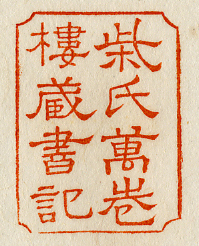 柴氏萬卷
樓藏書記